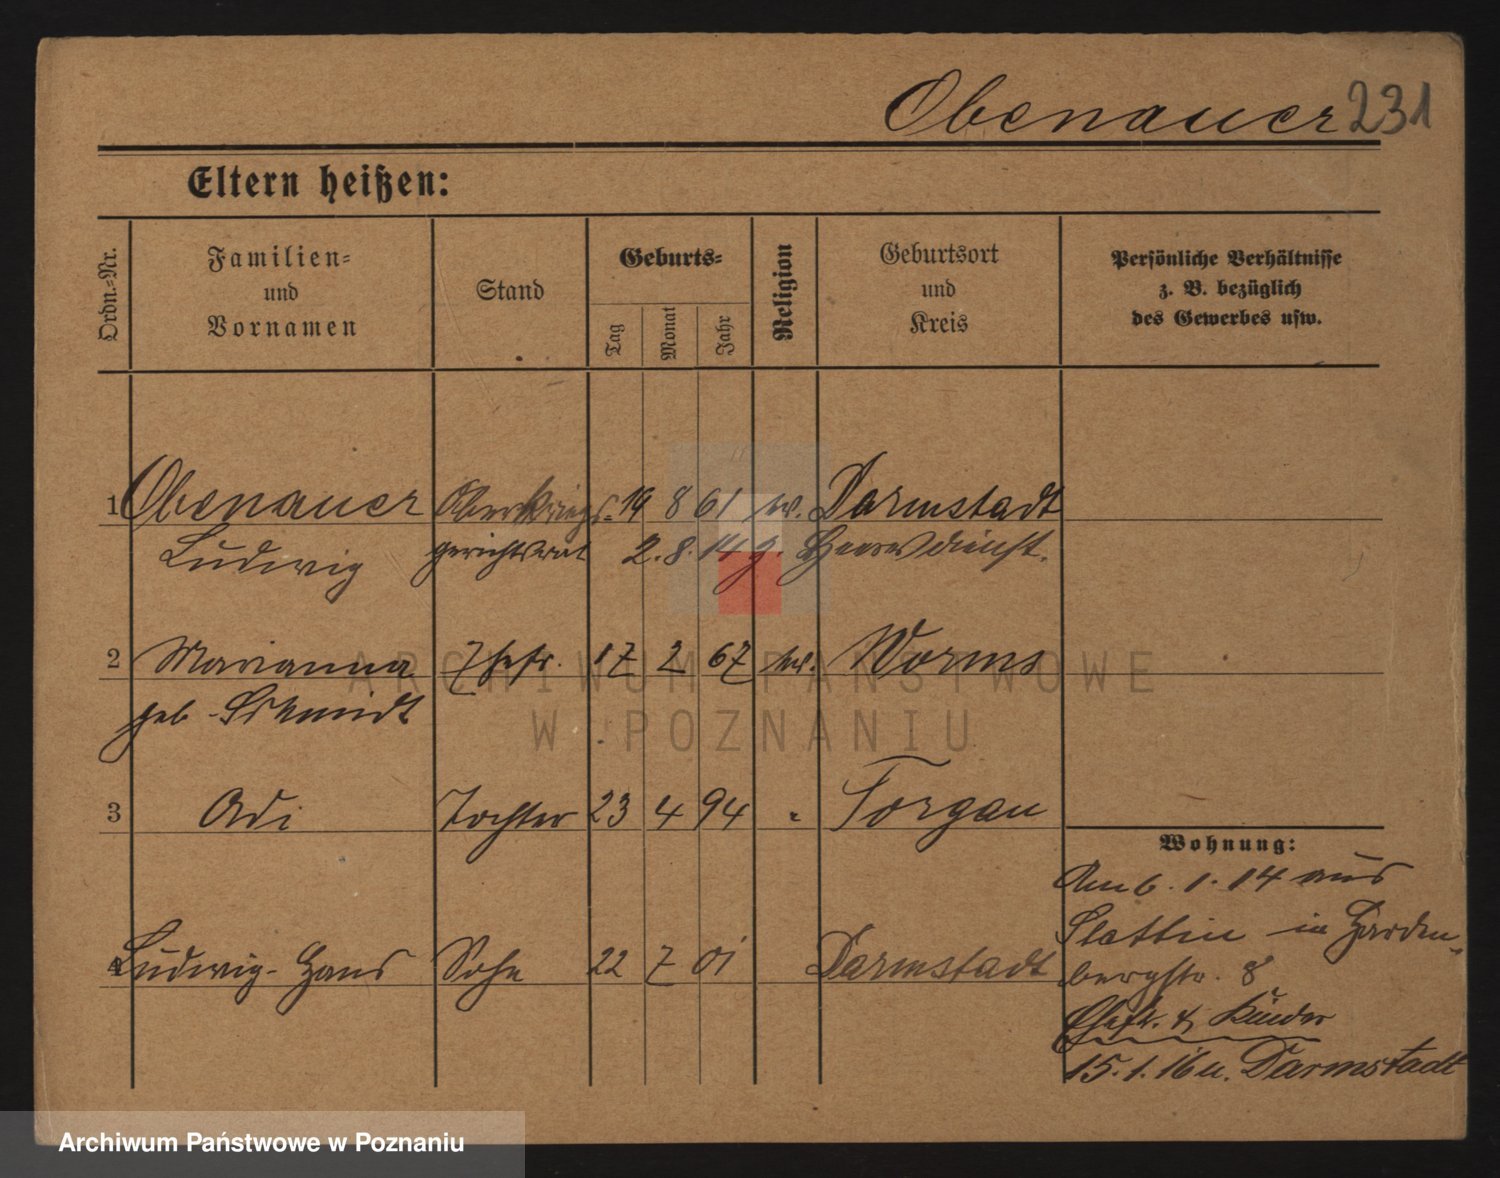 Obenauer 231
Eltern heißen:
Ordn.-Nr.
Familien-
und
Vornamen
Stand
Geburts-
Tag
Monat
Jahr
Religion
Geburtsort
und
Kreis
Persönliche Verhältnisse
z. B. bezüglich
des Gewerbes usw.
1 Obenauer Oberkriegs- 19 8 61 ev. Darmstadt
Ludwig gerichtsrat 2. 8. 14 z. Heeresdienst.
2 Marianna Ehefr. 17 2 67 ev. Worms
geb. Schmidt
3 Adi Tochter 23 4 94 " Torgau
4 Ludwig-Hans Sohn 22 7 01 Darmstadt
Wohnung:
Am 6. 1. 14 aus
Stettin in Harden-
bergstr. 8
Ehefr. & Kinder
15. 1. 16 n. Darmstadt
ARCHIWUM PAŃSTWOWE
W POZNANIU
Archiwum Państwowe w Poznaniu